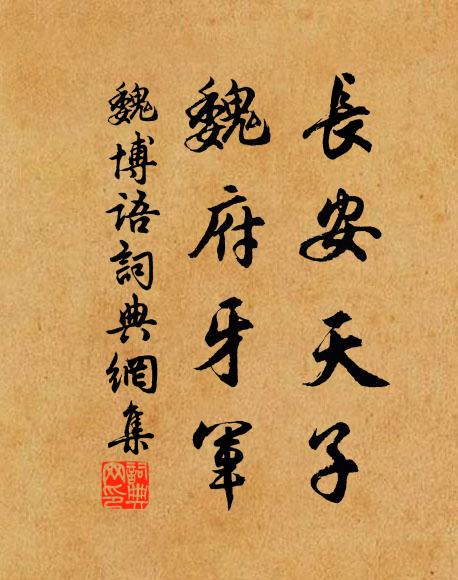 長安天子
魏府牙軍
魏博語詞典網集